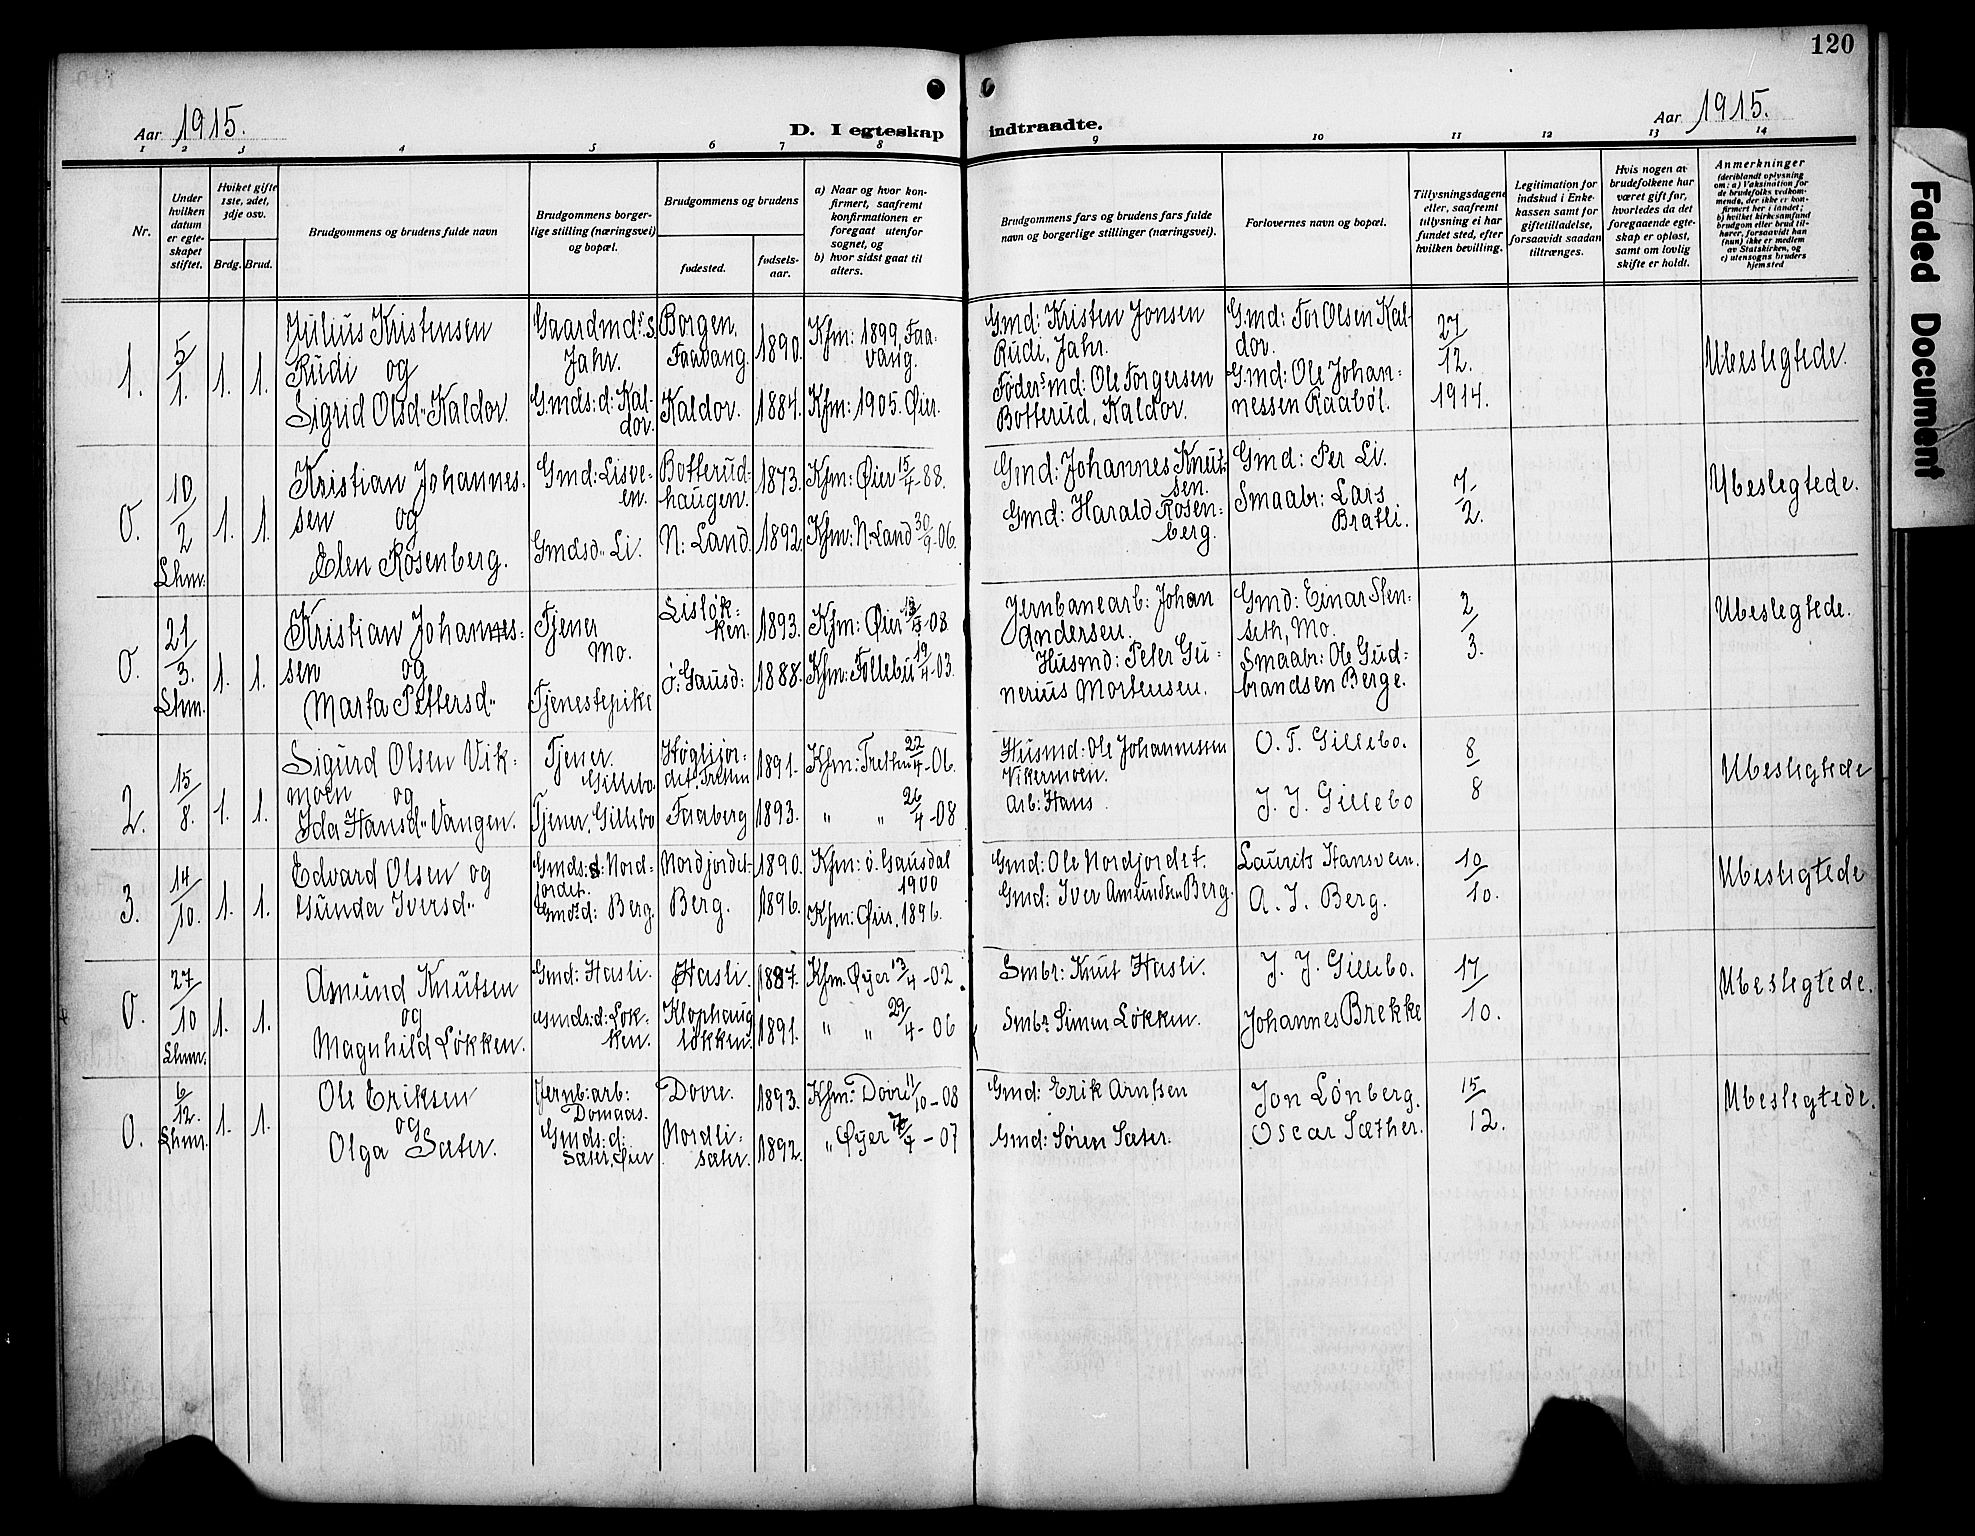 120
Aar 1915.
D. I egteskap indtraadte.
Aar 1915.
1 2 3 4 5 6 7 8 9 10 11 12 13 14
Nr.
Under
hvilken
datum
er egte-
skapet
stiftet.
Hviket gifte
1ste, 2det,
3dje osv.
Brdg. Brud.
Brudgommens og brudens fulde navn
Brudgommens borger-
lige stilling (næringsvei)
og bopæl.
Brudgommens og brudens
fødested.
fødsels-
aar.
a) Naar og hvor kon-
firmert, saafremt
konfirmationen er
foregaat utenfor
sognet, og
b) hvor sidst gaat til
alters.
Brudgommens fars og brudens fars fulde
navn og borgerlige stillinger (næringsvei).
Forlovernes navn og bopæl.
Tillysningsdagene
eller, saafremt
tillysning ei har
fundet sted, efter
hvilken bevilling.
Legitimation for
indskud i Enke-
kassen samt for
giftetilladelse,
forsaavidt saadan
tiltrænges.
Hvis nogen av
brudefolkene har
været gift før,
hvorledes da det
foregaaende egte-
skap er opløst,
samt om lovlig
skifte er holdt.
Anmerkninger
(deriblandt oplysning
om: a) Vaksination for
de brudefolks vedkom-
mende, der ikke er kon-
firmert her i landet;
b) hvilket kirkesamfund
brudgom eller brud til-
hører, forsaavidt han
(hun) ikke er medlem
av Statskirken, og
c) utensogns bruders
hjemsted
1.
5/1.
1. 1.
Julius Kristensen
Rudi og
Sigrid Olsd" Kaldor.
Gaardmds. s.
Jahr.
Gmds: d: Kal-
dor.
Borgen,
Faavang.
Kaldor.
1890.
1884.
Kfm: 1899, Faa-
vang.
Kfm: 1905. Øier.
Gmd: Kristen Jonsen
Rudi, Jahr.
Føders md: Ole Torgersen
Botterud, Kaldor.
Gmd: Tor Olsen Kal-
dor.
Gmd: Ole Johan-
nessen Raabøl.
27/12.
1914.
Ubeslegtede.
0.
10/2
Lhmr.
1. 1.
Kristian Johannes-
sen og
Elen Rosenberg.
Gmd: Lisve-
en.
Gmdsd" Li.
Botterud-
haugen.
N: Land.
1873.
1892.
Kfm: Øier 15/4-88.
Kfm: N: Land 30/9-06.
Gmd: Johannes Knut-
sen.
Gmd: Harald Rosen-
berg.
Gmd: Per Li.
Smaabr: Lars
Bratli.
7/2.
Ubeslegtede.
0.
21/3.
Lhmr.
1. 1.
Kristian Johannes-
sen og
Marta Pettersd"
Tjener
Mo.
Tjenestepike
Lisløk-
ken.
Ø: Gausd:
1893.
1888.
Kfm: Øier -08
Kfm: Follebu 19/4-03.
Jernbanearb: Johan
Andersen.
Husmd: Peter Gu-
nerius Mortensen.
Gmd: Einar Sten-
seth, Mo.
Smaabr: Ole Gud-
brandsen Berge.
2/3.
Ubeslegtede.
2.
15/8.
1. 1.
Sigurd Olsen Vik-
moen og
Ida Hansd" Vangen.
Tjener.
Gillebo
Tjener, Gillebo
Høglijor-
det, Tretten
Faaberg
1891.
1893.
Kfm: Tretten 22/4-06.
" " 26/4-08
Husmd: Ole Johannessen
Vikermoen.
Arb: Hans
O. T. Gillebo.
J. J. Gillebo
8/8
Ubeslegtede
3.
14/10.
1. 1.
Edvard Olsen og
Gunda Iversd"
Gmds: s: Nord-
jordet.
Gmds: d: Berg.
Nordjordet
Berg.
1890.
1896.
Kfm: ø. Gausdal
1900
Kfm: Øier, 1896.
Gmd: Ole Nordjordet.
Gmd: Iver Amundsen Berg.
Laurits Hansveen.
A. I. Berg.
10/10.
Ubeslegtede
0.
27/10
Lhmr.
1. 1.
Amund Knutsen
og
Magnhild Løkken.
Gmd: Hasli.
Gmds: d: Løk-
ken.
Hasli.
Klophaug
løkken.
1887.
1891.
Kfm. Øyer 13/4-02.
" " 29/4-06
Smbr: Knut Hasli.
Smbr Simen Løkken.
J. J. Gillebo.
Johannes Brekke
17/10.
Ubeslegtede.
0.
6/12.
Lhmr.
1. 1.
Ole Eriksen
og
Olga Sæter.
Jernb: arb:
Domaas.
Gmds: d:
Sæter, Øier
Dovre.
Nordli-
sæter.
1893.
1892.
Kfm: Dovre 11/10-08
" Øyer -07
Gmd: Erik Arntsen
Gmd: Søren Sæter.
Jon Lønberg.
Oscar Sæther.
15/12.
Ubeslegtede.
Faded Document